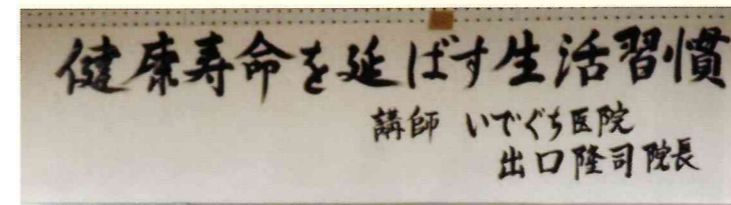 健康寿命を延ばす生活習慣
講師 いでぐち医院
出口隆司院長